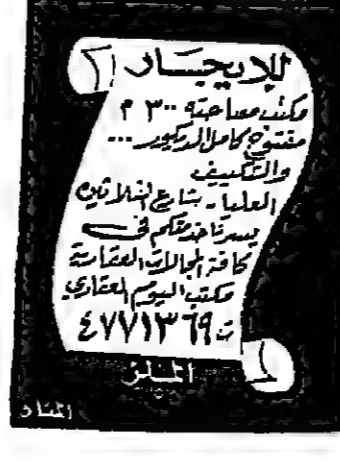 للإيجار
مكتب مساحته ٣٠٠ م
مفتوح كامل الديكور ...
والتكييف
العليا - بشارع الثلاثين
يسرنا خدمتكم في
كافة المجالات العقارية
مكتب اليوم العقاري
ت: ٤٧٧١٣٦٩
الملز